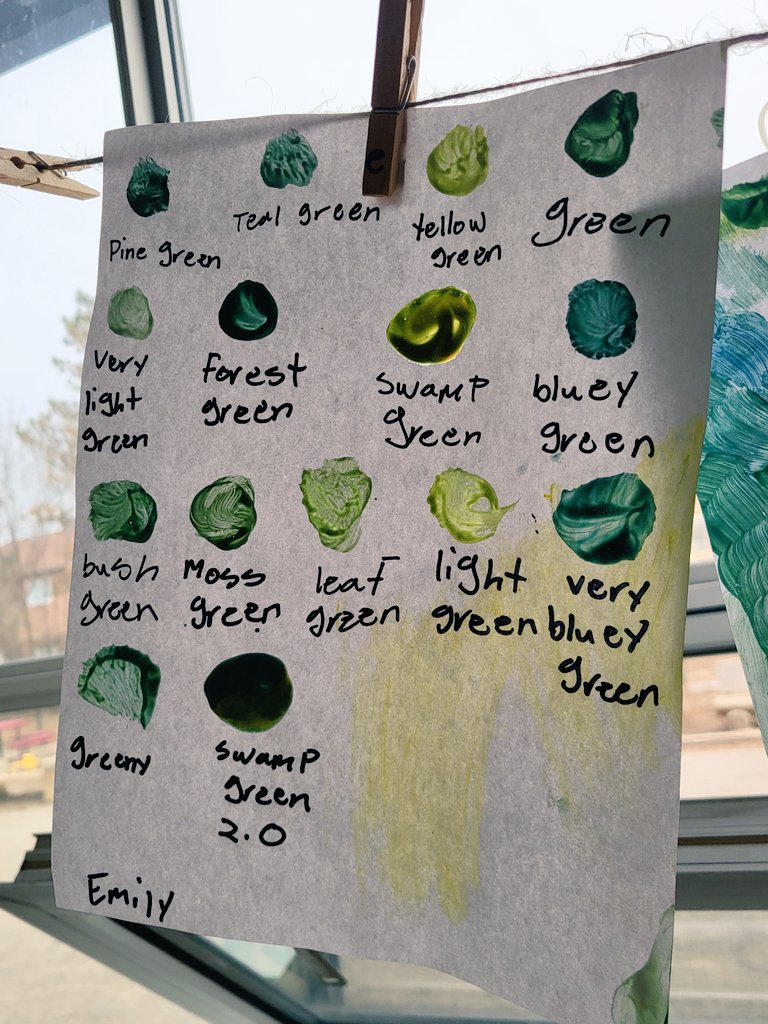 e
Pine green
Teal green
Yellow
green
green
very
light
green
Forest
green
swamp
green
bluey
green
bush
green
Moss
green
leaf
green
light
green
very
bluey
green
greeny
swamp
green
2.0
Emily